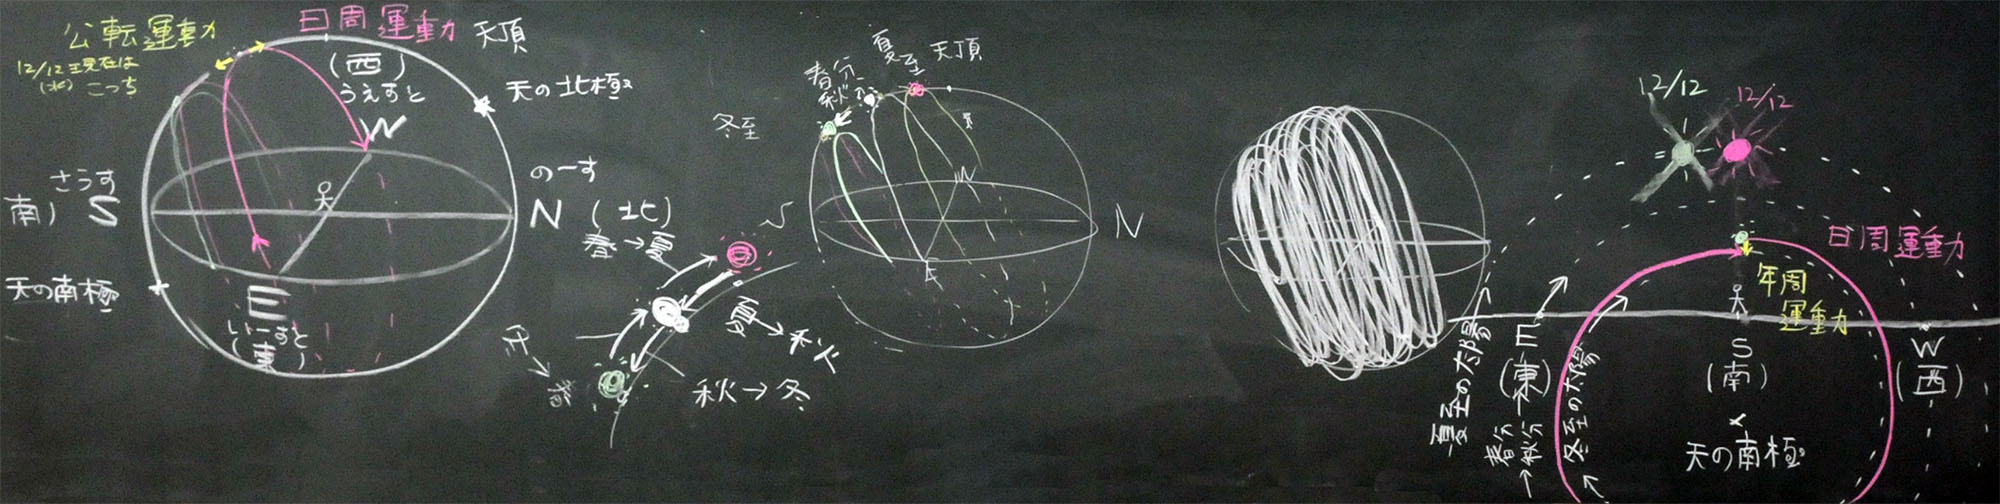 公転運動
12/12現在は
(水) こっち
日周運動
天頂
(西)
うえすと
W
天の北極
さうす
南) S
のーす
N (北)
天の南極
E
いーすと
(東)
夏至
天頂
春分
秋分
冬至
S
W
E
N
春→夏
夏→秋
秋→冬
冬→春
12/12
12/12
日周運動
年周
運動
夏至の太陽
E
(東)
春分
秋分
冬至の太陽
S
(南)
W
(西)
天の南極